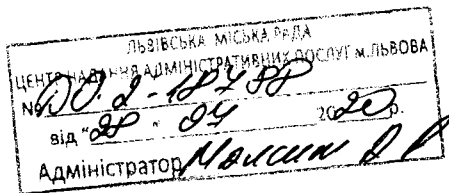 ЛЬВІВСЬКА МІСЬКА РАДА
ЦЕНТР НАДАННЯ АДМІНІСТРАТИВНИХ ПОСЛУГ М.ЛЬВОВА
№ DO.2-18788
від "28" 04 2020 р.
Адміністратор